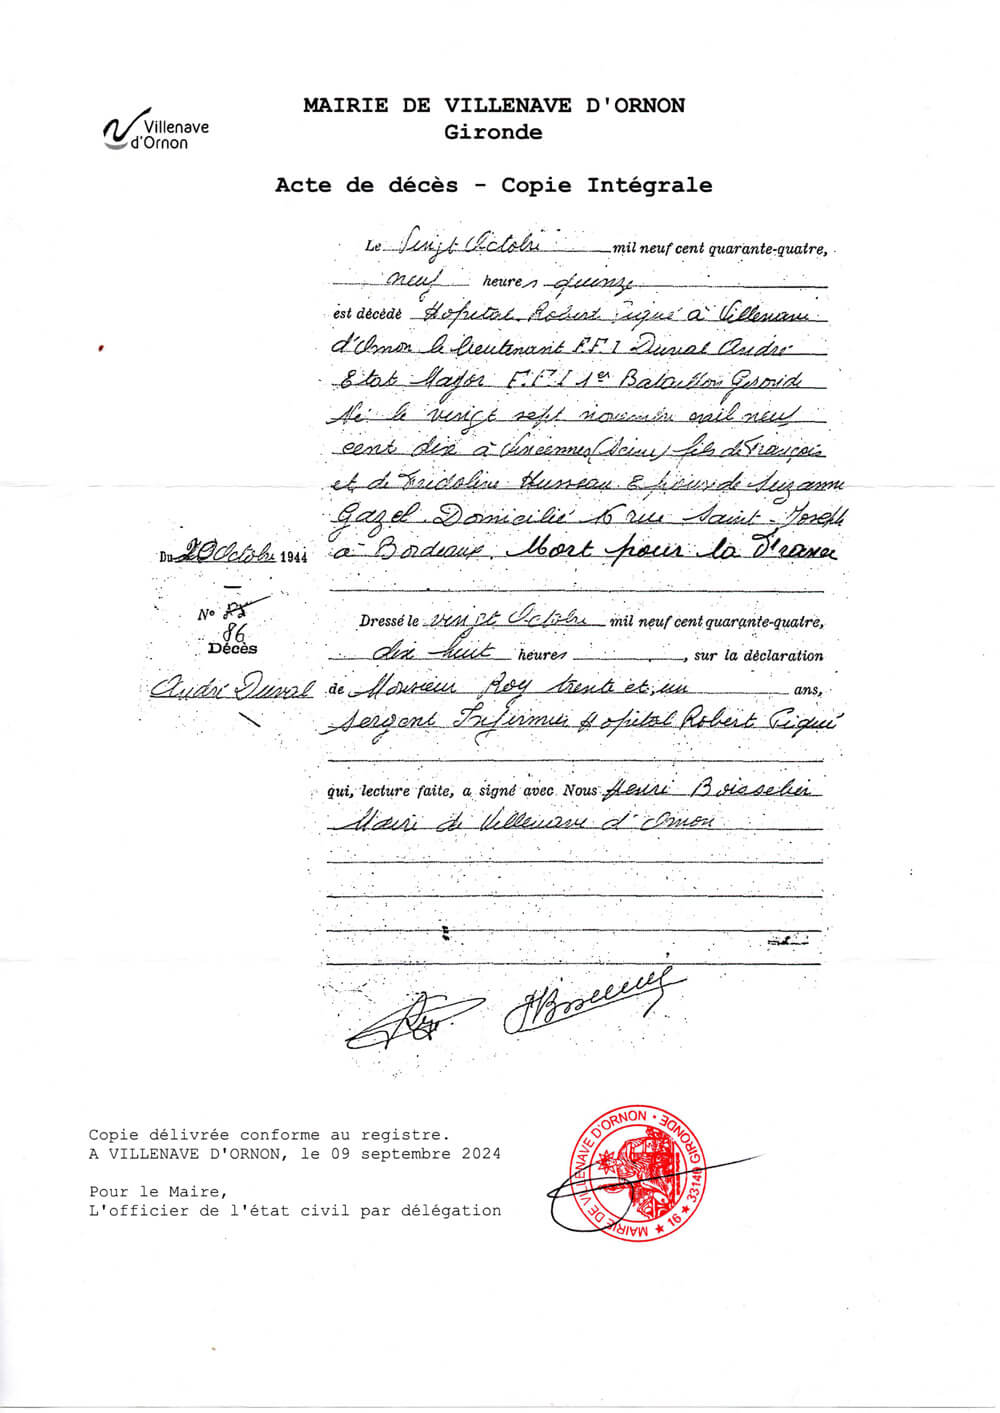 Villenave
d'Ornon
MAIRIE DE VILLENAVE D'ORNON
Gironde
Acte de décès - Copie Intégrale
Le Vingt Octobre mil neuf cent quarante-quatre,
neuf heures quinze
est décédé Hopital Robert Piqué à Villenave
d'Ornon le lieutenant F.F.I Duval André
Etat Major F.F.I 1er Bataillon Gironde
Né le vingt sept novembre mil neuf
cent dix à Vincennes (Seine) fils de François
et de Fridoline Husseau Epoux de Suzanne
Gazel Domicilié 16 rue Saint-Joseph
à Bordeaux. Mort pour la France
Du 20 Octobre 1944
N°
86
Décès
André Duval
Dressé le vingt Octobre mil neuf cent quarante-quatre,
dix huit heures , sur la déclaration
de Monsieur Roy trente et un ans,
Sergent Infirmier Hopital Robert Piqué
qui, lecture faite, a signé avec Nous Henri Boisselier
Maire de Villenave d'Ornon
Copie délivrée conforme au registre.
A VILLENAVE D'ORNON, le 09 septembre 2024
Pour le Maire,
L'officier de l'état civil par délégation
MAIRIE DE VILLENAVE D'ORNON • GIRONDE
★ 16 ★ 33140